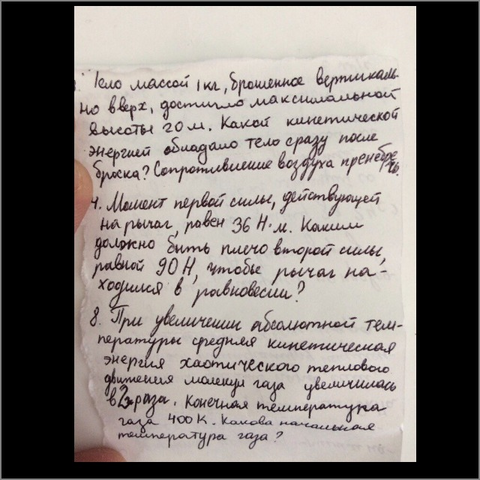 Тело массой 1 кг, брошенное вертикаль
но вверх, достигло максимальной
высоты 20 м. Какой кинетической
энергией обладало тело сразу после
броска? Сопротивление воздуха пренебречь.
4. Момент первой силы, действующей
на рычаг, равен 36 Н·м. Каким
должно быть плечо второй силы,
равной 90 Н, чтобы рычаг на-
ходился в равновесии?
8. При увеличении абсолютной тем-
пературы средняя кинетическая
энергия хаотического теплового
движения молекул газа увеличилась
в 2 раза. Конечная температура
газа 400 К. Какова начальная
температура газа?